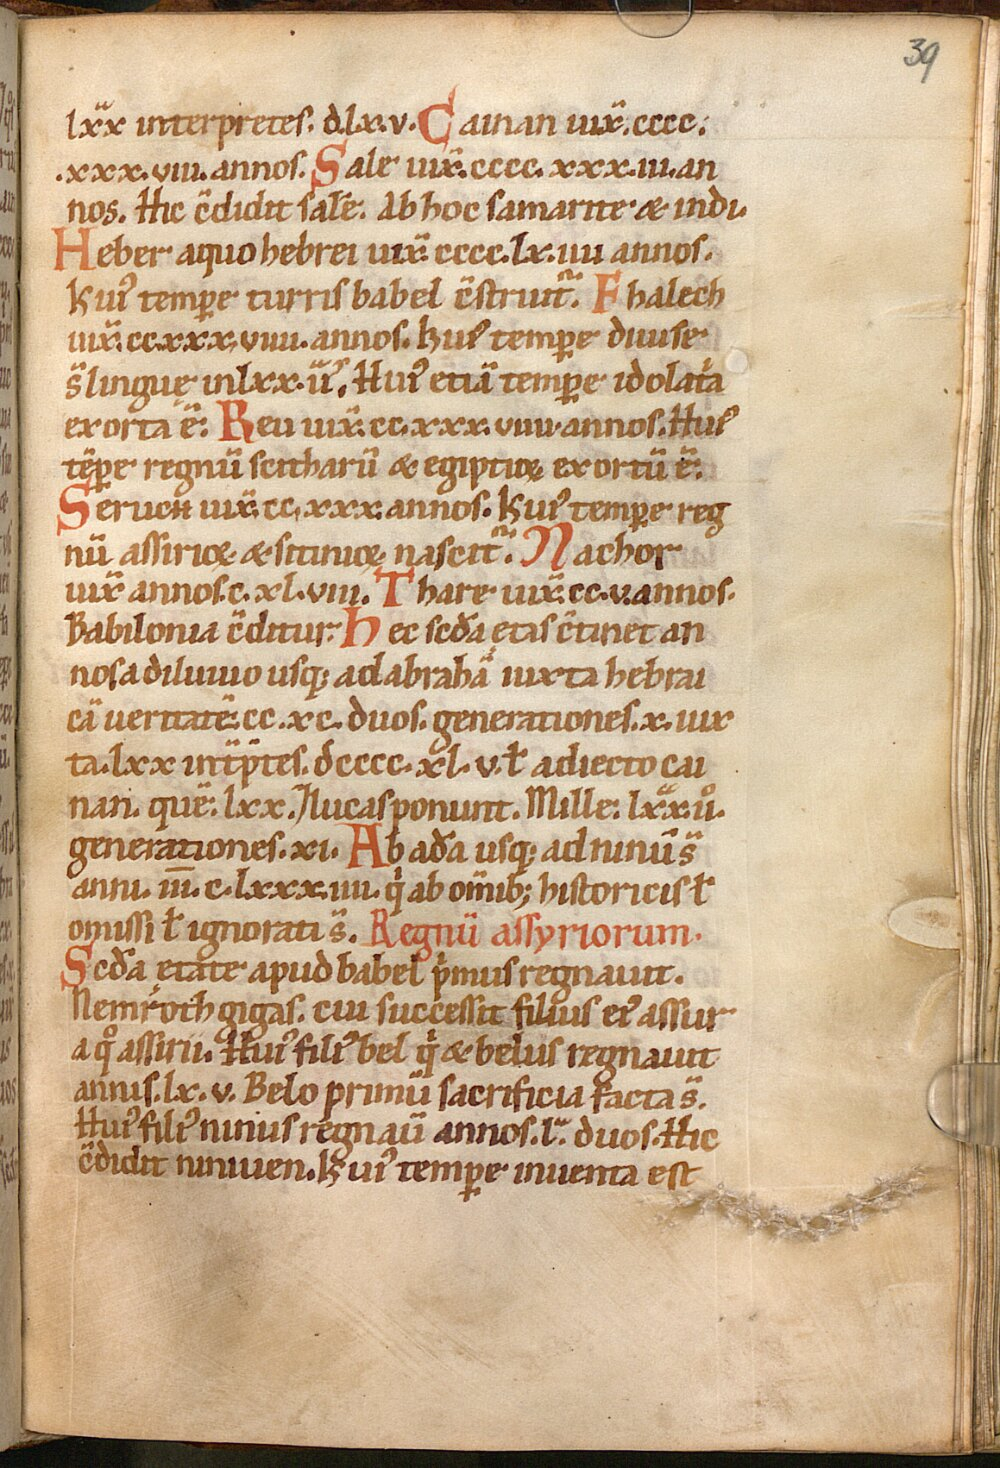 39
lxx interpretes. d.lx.v. Cainan uix. cccc.
.xxx.viii. annos. Sale uix. cccc. xxx.iii. an
nos. Hic c̄didit salē. Ab hoc samarite & indi.
Heber a quo hebrei uix. cccc. lx. iiii annos.
Hui' temꝑe turris babel c̄struit̃. Fhalech
uix. cc.xxx.viiii. annos. hui' temꝑe diuise
s̄ lingue in lxx.ii'. Hui' etiā temꝑe idolat̃a
exorta ē. Reu uix. cc.xxx.viiii. annos. Hui'
tēꝑe regnū scitharū & egiptioꝝ exortū ē.
Seruch uix. cc.xxx. annos. Hui' temꝑe reg
nū assirioꝝ & sitinioꝝ nascit̃. Nachor
uix annos. c. xl.viii. Thare uix. cc.v. annos.
Babilonia c̄ditur. Hec sc̄da ętas c̄tinet an
nos a diluuio usq; ad abrahā iuxta hebrai
cā ueritatē. cc. xc. duos. generationes. x. iux
ta. lxx int̄p̄tes. dcccc. xl. v. ł adiecto cai
nan. quē. lxx. & lucas ponunt. Mille. lxx.ii.
generationes. xi. Ab ada usq; ad ninū s̄
anni. iii. c. lxxx.iiii. q̇ ab om̄ib; historicis ł
omissi ł ignorati s̄. Regnū assyriorum.
Sc̄da etate apud babel p̍mus regnauit.
Nemroth gigas. cui successit filius ei' assur
a qͦ assirii. Hui' fili' bel q̇ & belus regnauit
annis. lx. v. Belo primū sacrificia facta s̄.
Hui' fili' ninus regnaū annos. l. duos. Hic
c̄didit niniuen. Hui' temꝑe inuenta est